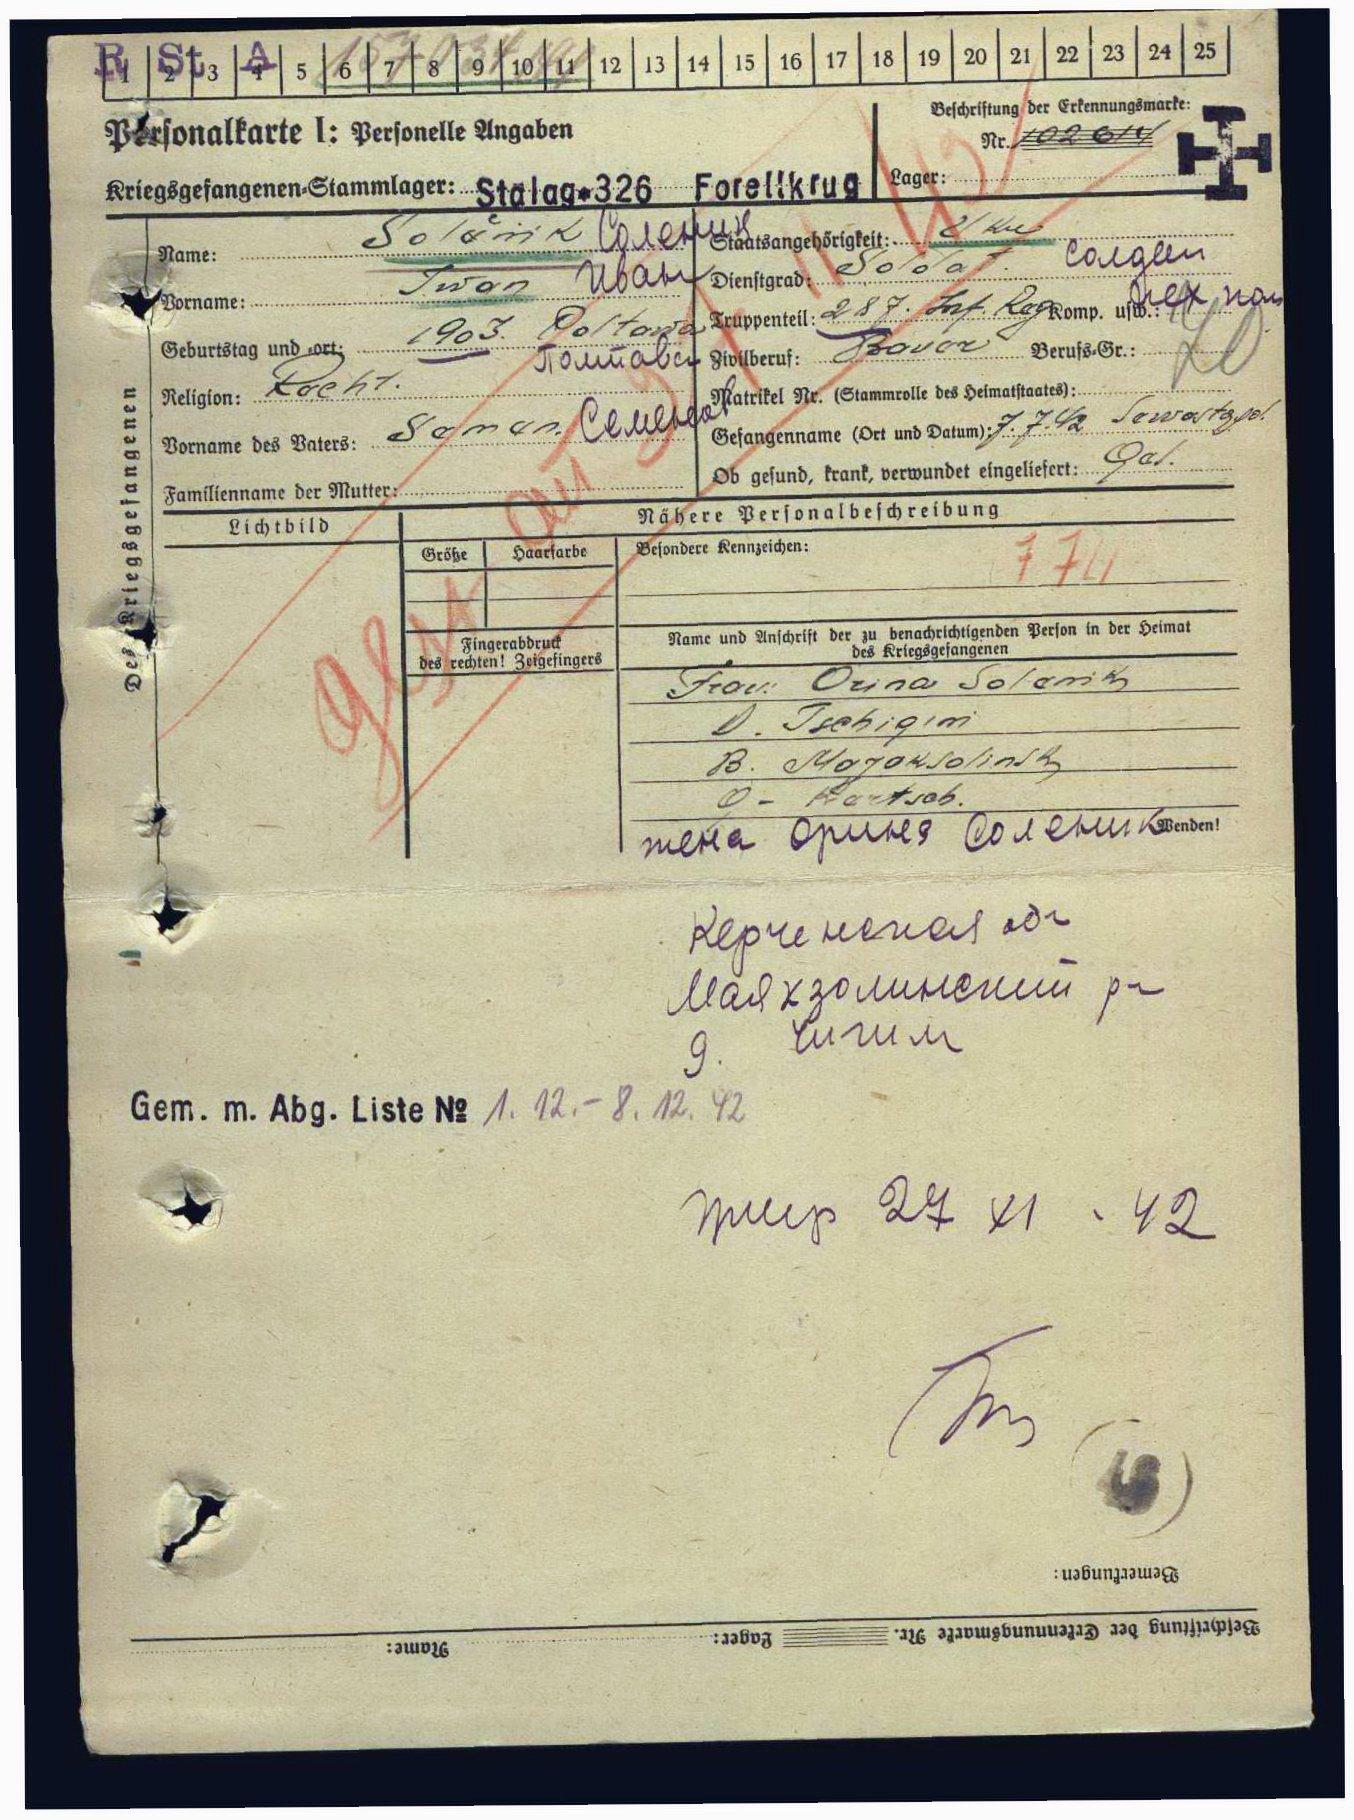 R St A
1 2 3 4 5 6 7 8 9 10 11 12 13 14 15 16 17 18 19 20 21 22 23 24 25
Personalkarte I: Personelle Angaben
Beschriftung der Erkennungsmarke:
Nr. 102614
Kriegsgefangenen-Stammlager: Stalag 326 Forellkrug
Lager:
Des Kriegsgefangenen
Name: Solänik Соленик
Vorname: Iwan Иван
Geburtstag und -ort: 1903. Poltawa
Полтавск
Religion: Recht.
Vorname des Vaters: Semen. Семенов
Familienname der Mutter:
Staatsangehörigkeit: Ukr
Dienstgrad: Soldat. Солдат
Truppenteil: 287. Inf. Reg Komp. usw.:
Zivilberuf: Bauer Berufs-Gr.:
Matrikel Nr. (Stammrolle des Heimatstaates):
Gefangenname (Ort und Datum): 7.7.42 Sewastopol.
Ob gesund, krank, verwundet eingeliefert: Ges.
Lichtbild
Nähere Personalbeschreibung
Größe
Haarfarbe
Besondere Kennzeichen:
Fingerabdruck
des rechten! Zeigefingers
Name und Anschrift der zu benachrichtigenden Person in der Heimat
des Kriegsgefangenen
Frau: Orina Solenik
D. Tschigini
B. Majaksolinsk
O- Kertsch.
жена Орина Соленик Wenden!
Керченская об-
Маякзолинский р-
д. Чигим
Gem. m. Abg. Liste № 1. 12. - 8. 12. 42
умер 27 XI. 42
Bemerkungen:
Beschriftung der Erkennungsmarke Nr. Lager: Name: